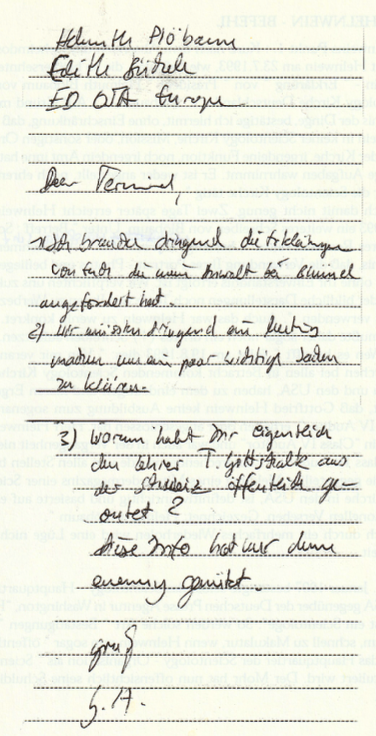 Helmuth Blöbaum
Edith
ED OSA Europe
Dear Terminal,
1) Ich brauche dringend die Erklärungen
von Euch die mein Anwalt bei
angefordert hat.
2) Wir müssten dringend ein Meeting
machen um ein paar wichtige Sachen
zu klären.
3) Warum habt Ihr eigentlich
den Lehrer T. Gottschalk aus
der Schweiz öffentlich ge-
outet?
diese Info hat nur dem
enemy genützt.
gruß
G. H.